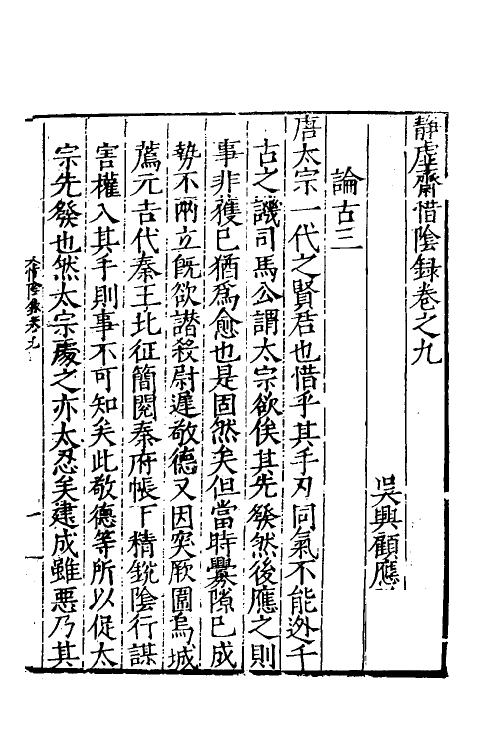 静虛齋惜陰録卷之九
吳興顧應
論古三
唐太宗一代之賢君也惜乎其手刃同氣不能逃千
古之譏司馬公謂太宗欲俟其先發然後應之則
事非獲已猶爲愈也是固然矣但當時釁隙已成
勢不兩立旣欲譖殺尉遲敬德又因突厥圍烏城
薦元吉代秦王北征簡閱秦府帳下精銳陰行謀
害權入其手則事不可知矣此敬德等所以促太
宗先發也然太宗處之亦太忍矣建成雖惡乃其
惜陰錄卷九
一